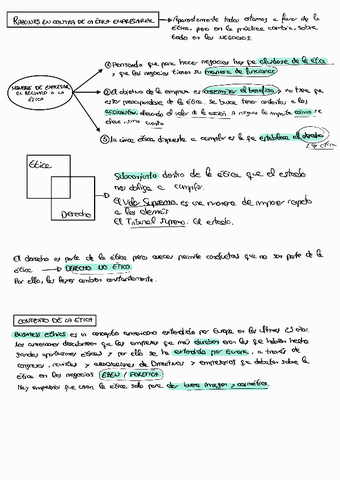 RAZONES EN CONTRA DE LA ÉTICA EMPRESARIAL
Aparentemente todos estamos a favor de la
ética, pero en la práctica cambia, sobre
todo en los negocios.
HOMBRE DE EMPRESA
EL RECHAZO A LA
ÉTICA
① Pensando que para hacer negocios hay que olvidarse de la ética
y que los negocios tienen su manera de funcionar
② El objetivo de la empresa es maximizar el beneficio, no tiene que
estar preocupándose de la ética. Se busca tener contentos a los
accionistas, elevando el valor de la acción. A ninguno le importa como se
eleve, sino cuanto
③ La única ética dispuesta a cumplir es la que establece el derecho
Ética
Derecho
Subconjunto dentro de la ética que el estado
nos obliga a cumplir.
El Valor Supremo es una manera de imponer respeto
a los demás
El Tribunal Supremo. El estado.
El derecho es parte de la ética pero a veces permite conductas que no son parte de la
ética → DERECHO NO ÉTICO.
Por ello, las leyes cambian constantemente.
CONTEXTO DE LA ÉTICA
Business ethics es un concepto americano extendido por Europa en los últimos años.
Los americanos descubrieron que las empresas que más duraban eran las que habían hecho
grandes aportaciones éticas y por ello se ha extendido por Europa, a través de
congresos, revistas y asociaciones de Directivos y empresarios que debaten sobre la
ética en los negocios EBEN / FORÉTICA
Hay empresas que usan la ética solo para dar buena imagen y cosmética.